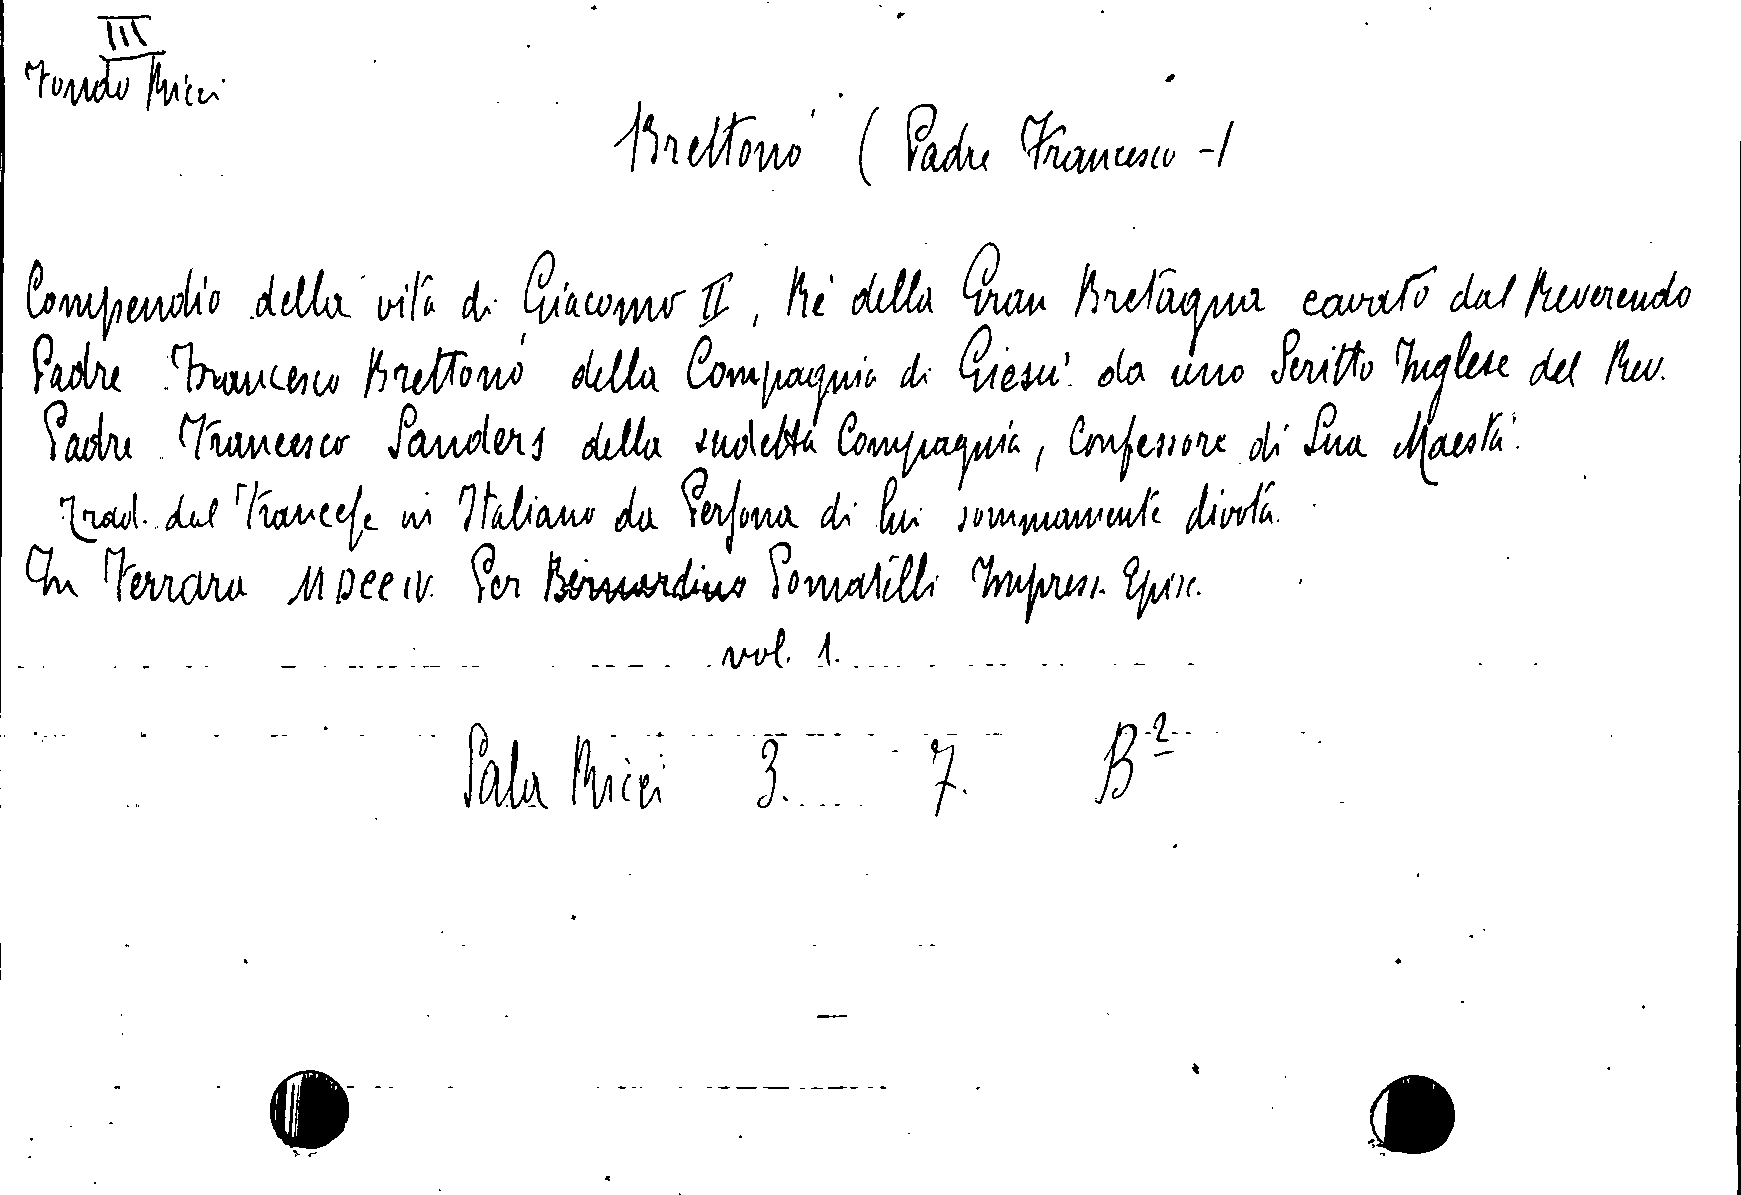 III
Fondo Ricci
Brettonò (Padre Francesco -)
Compendio della vita di Giacomo II, Rè della Gran Bretagna cavato dal Reverendo
Padre Francesco Brettonò della Compagnia di Giesù da uno Scritto Inglese del Rev.
Padre Francesco Sanders della sudetta Compagnia, Confessore di Sua Maestà.
Trad. dal Francese in Italiano da Persona di lui sommamente divota.
In Ferrara MDCCIV. Per Bernardino Pomatelli Impress. Episc.
vol. 1.
Sala Ricci 3. 7. B²